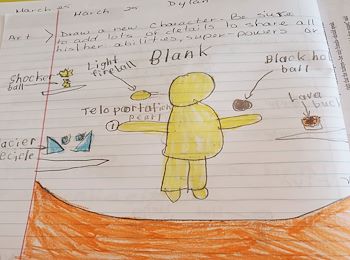 March 25 March 25 Dylan
Art > Draw a new character. Be sure
to add lots of details to share all
his/her abilities, super-powers or
Blank
Light
fireball
Shocker
ball
Black ho
ball
Teloportation
pearl
1
Lava
buck
lacier
ecicle